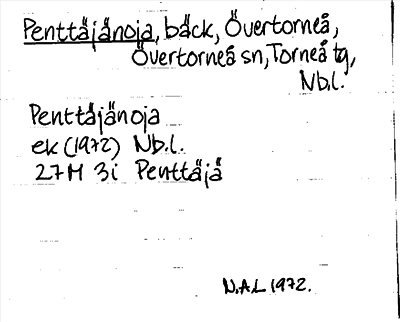 Penttäjänoja, bäck, Övertorneå,
Övertorneå sn, Torneå tg,
Nb.l.
Penttäjänoja
ek (1972) Nb.l.
27M 3i Penttäjä
N.A.L 1972.